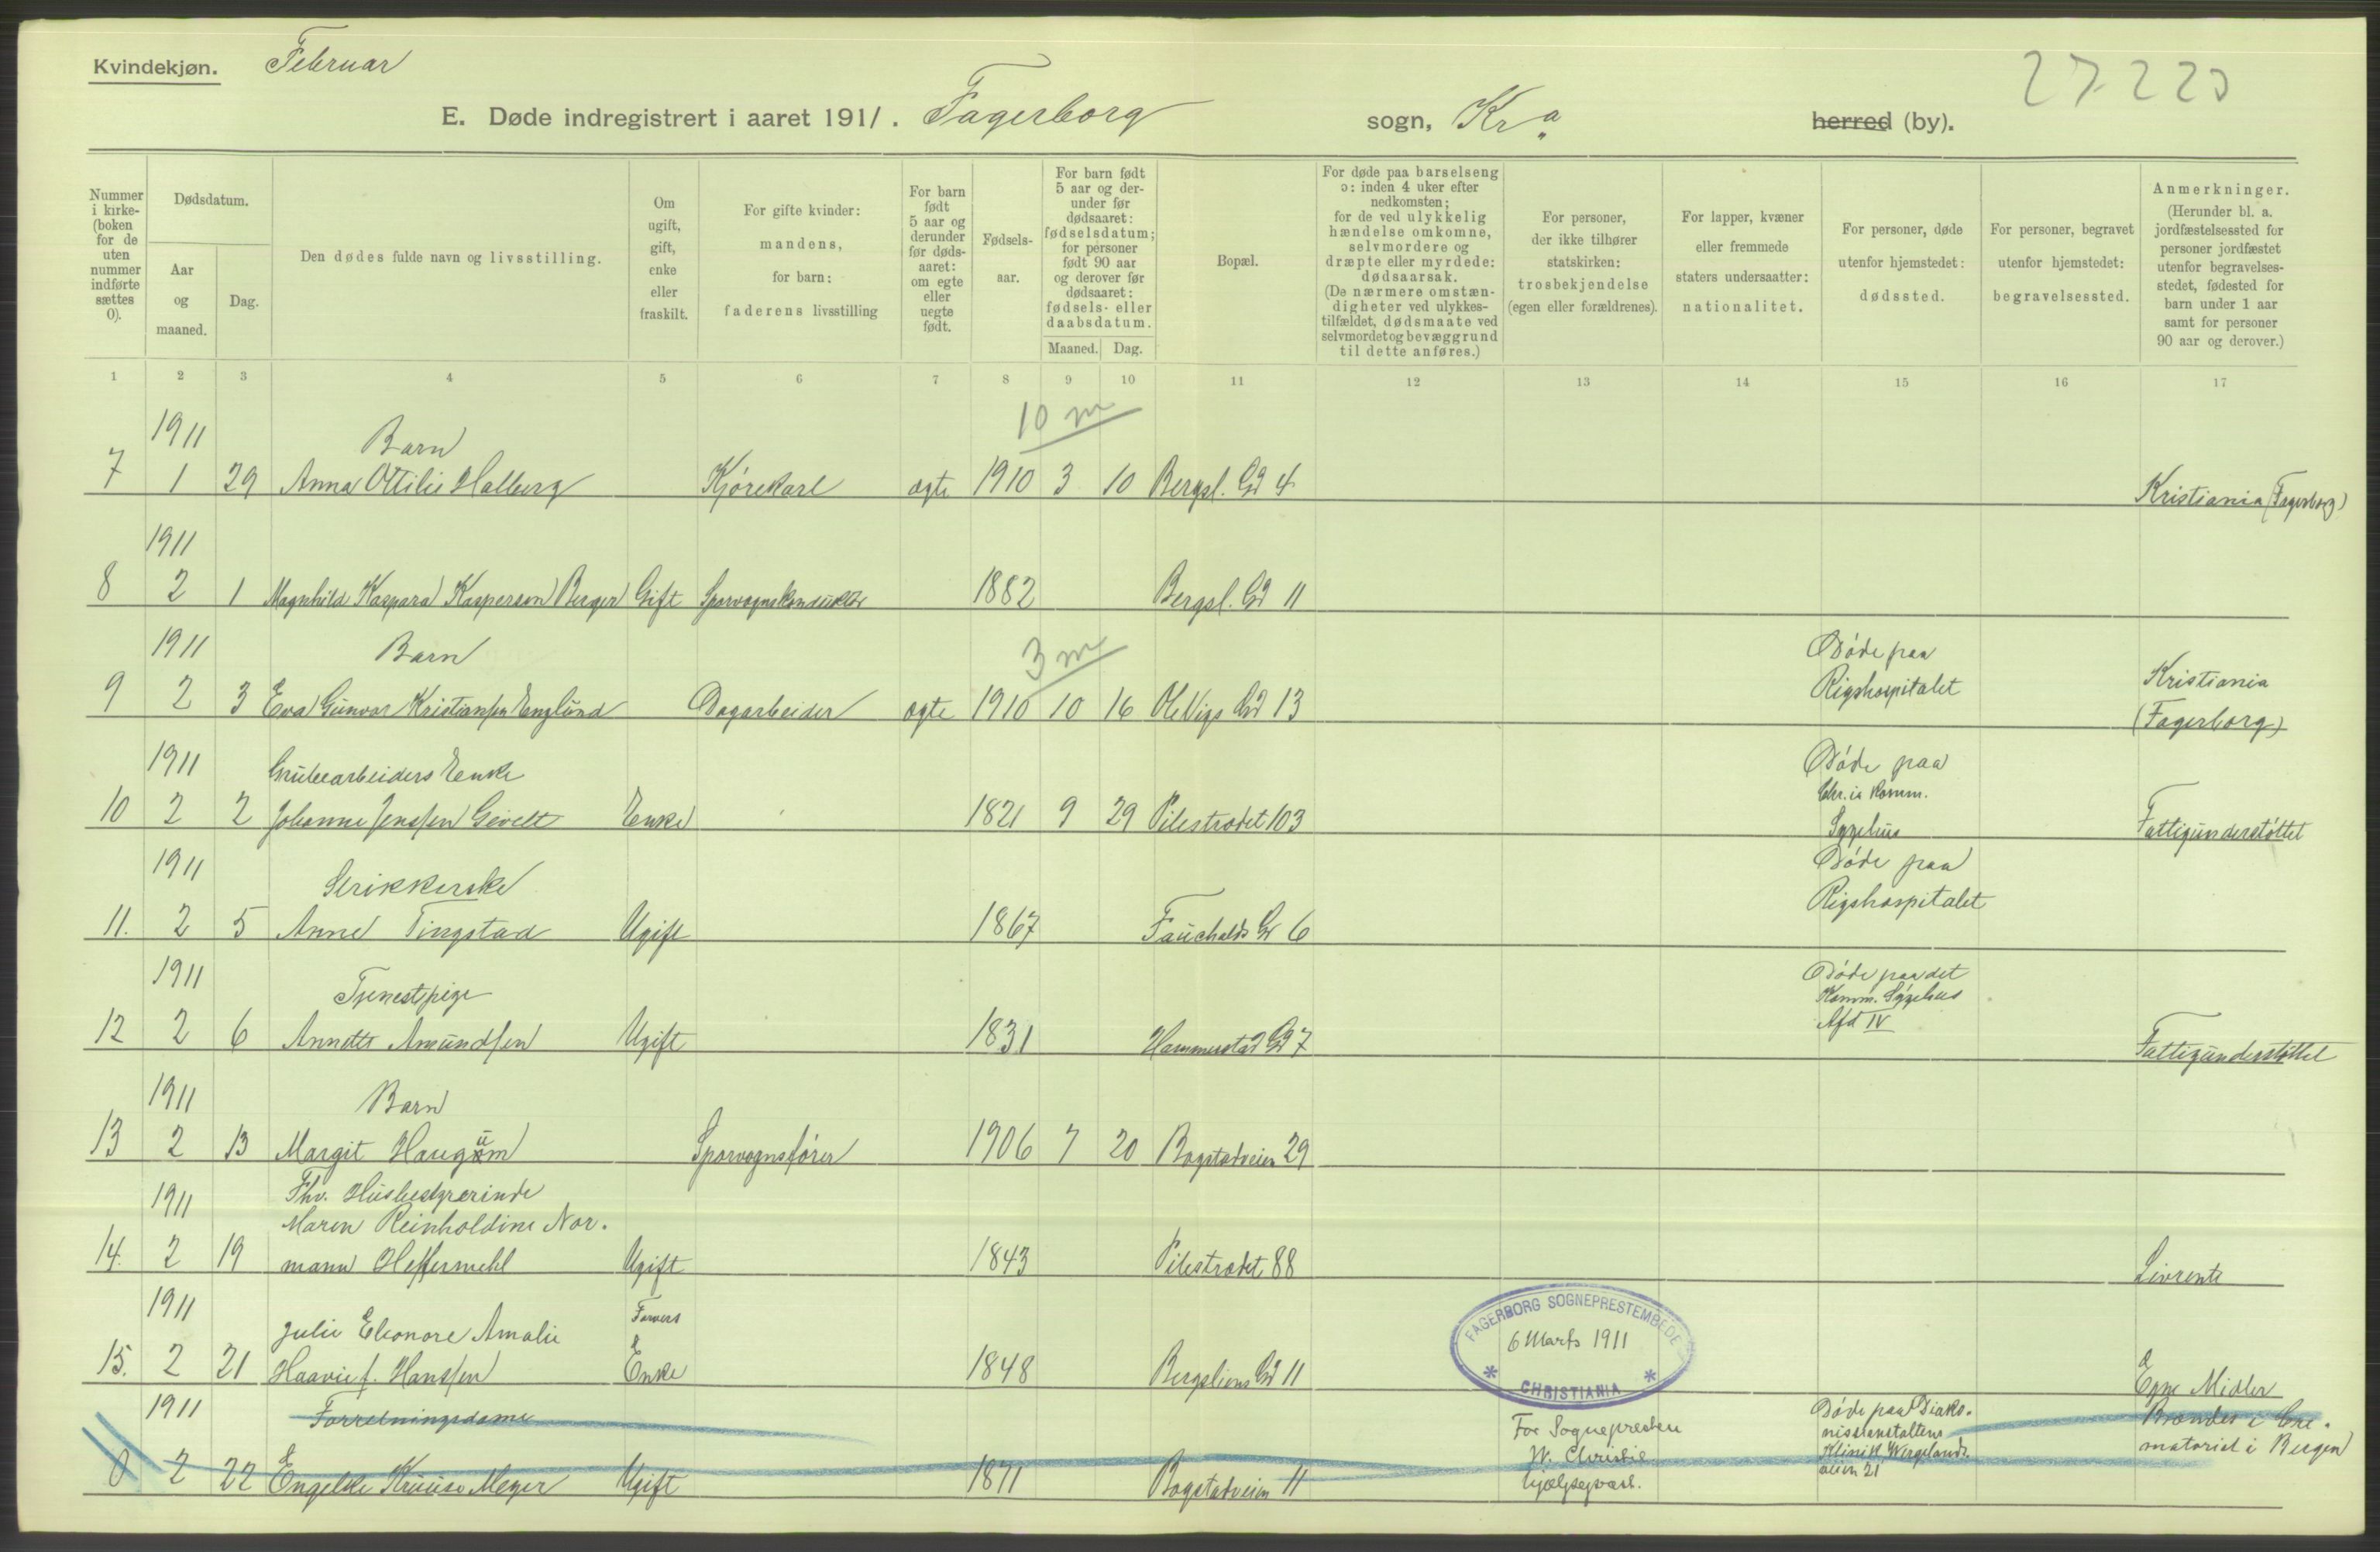 Kvindekjøn. Februar
27-220
E. Døde indregistrert i aaret 1911. Fagerborg sogn, Kra herred (by).
Nummer i kirke-(boken for de uten nummer indførte sættes 0).
Dødsdatum.
Aar og maaned.
Dag.
Den dødes fulde navn og livsstilling.
Om ugift, gift, enke eller fraskilt.
For gifte kvinder: mandens, for barn: faderens livsstilling
For barn født 5 aar og derunder før døds-aaret: om egte eller uegte født.
Fødsels-aar.
For barn født 5 aar og der-under før dødsaaret: fødselsdatum; for personer født 90 aar og derover før dødsaaret: fødsels- eller daabsdatum.
Maaned. Dag.
Bopæl.
For døde paa barselseng ɔ: inden 4 uker efter nedkomsten; for de ved ulykkelig hændelse omkomne, selvmordere og dræpte eller myrdede: dødsaarsak. (De nærmere omstæn-digheter ved ulykkes-tilfældet, dødsmaate ved selvmordet og bevæggrund til dette anføres.)
For personer, der ikke tilhører statskirken: trosbekjendelse (egen eller forældrenes).
For lapper, kvæner eller fremmede staters undersaatter: nationalitet.
For personer, døde utenfor hjemstedet: dødssted.
For personer, begravet utenfor hjemstedet: begravelsessted.
Anmerkninger. (Herunder bl. a. jordfæstelsessted for personer jordfæstet utenfor begravelses-stedet, fødested for barn under 1 aar samt for personer 90 aar og derover.)
1 2 3 4 5 6 7 8 9 10 11 12 13 14 15 16 17
1911 Barn 10 m
7 1 29 Anna Ottilie Halberg Kjørekarl ægte 1910 3 10 Bergsl. Gd 4 Kristiania (Fagerborg)
1911
8 2 1 Magnhild Kaspara Kasperson Berger Gift Sporvognskonduktør 1882 Bergsl. Gd 11
1911 Barn 3 m Døde paa
9 2 3 Eva Gunvor Kristiansen Englund Dagarbeider ægte 1910 10 16 Ole Vigs Gd 13 Rigshospitalet Kristiania (Fagerborg)
1911 Grubearbeiders Enke Døde paa Chr.ia Komm.
10 2 2 Johanne Jenssen Gevelt Enke 1821 9 29 Pilestrædet 103 Sygehus Fattigunderstøttet
1911 Strikkerske Døde paa Rigshospitalet
11. 2 5 Anne Tingstad Ugift 1867 Fauchalds Gt 6
1911 Tjenestpige Døde paa det Komm. Sygehus Afd IV
12 2 6 Annette Amundsen Ugift 1831 Hammerstad Gd 7 Fattigunderstøttet
1911 Barn
13 2 13 Margit Haugum Sporvognsfører 1906 7 20 Bogstadveien 29
1911 Fhv. Husbestyrerinde
Maren Reinholdine Nor-
14. 2 19 mann Heffermehl Ugift 1843 Pilestrædet 88 Livrente
1911 Julie Eleonore Amalie Farvers
15. 2 21 Haavie f. Hanssen Enke 1848 Bergsliens Gd 11 Egne Midler
FAGERBORG SOGNEPRESTEMBEDE
6 Marts 1911
* CHRISTIANIA *
For Sognepresten
W. Christie
hjælpeprest.
1911 Forretningsdame Døde paa Diako-nisseanstaltens Klinik, Wergelands-veien 21 Brændes i Cre-matoriet i Bergen
0 2 22 Engelke Kruuse Meyer Ugift 1871 Bogstadveien 11